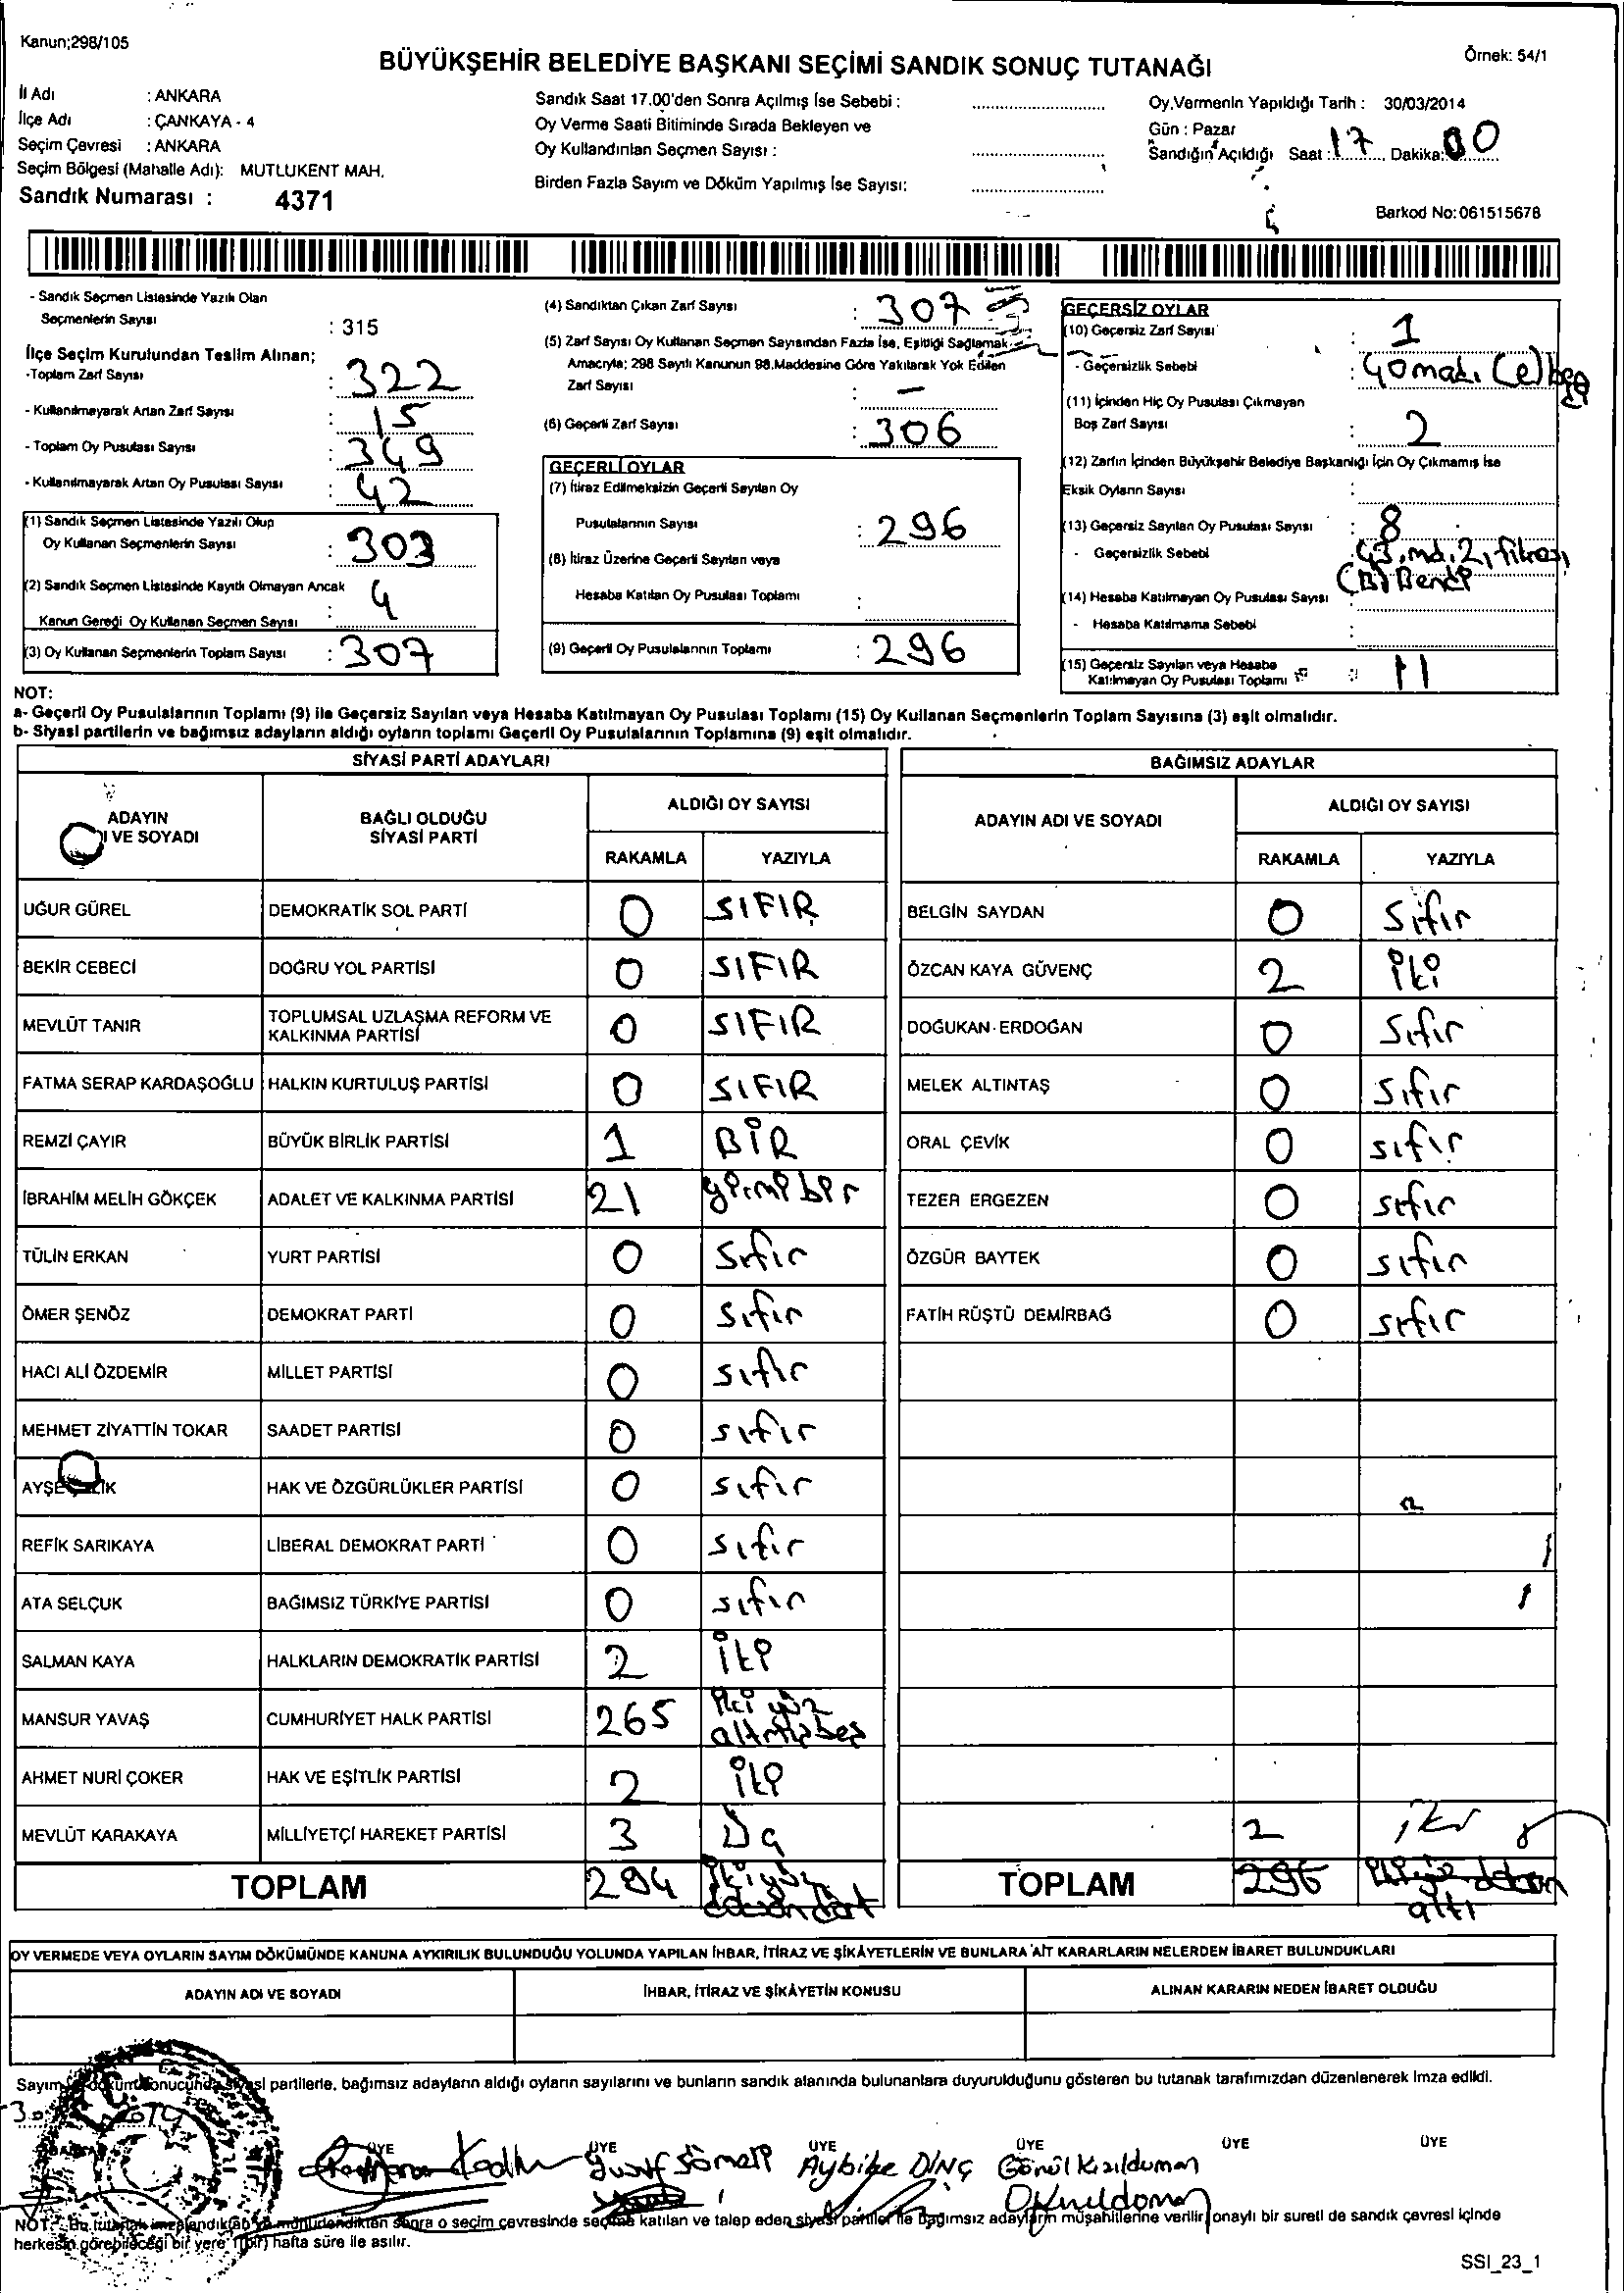 Kanun;298/105
BÜYÜKŞEHİR BELEDİYE BAŞKANI SEÇİMİ SANDIK SONUÇ TUTANAĞI
Örnek: 54/1
İl Adı : ANKARA
İlçe Adı : ÇANKAYA - 4
Seçim Çevresi : ANKARA
Seçim Bölgesi (Mahalle Adı): MUTLUKENT MAH.
Sandık Numarası : 4371
Sandık Saat 17.00'den Sonra Açılmış İse Sebebi :
Oy Verme Saati Bitiminde Sırada Bekleyen ve
Oy Kullandırılan Seçmen Sayısı :
Birden Fazla Sayım ve Döküm Yapılmış İse Sayısı:
Oy Vermenin Yapıldığı Tarih : 30/03/2014
Gün : Pazar
Sandığın Açıldığı Saat : 17 Dakika: 00
Barkod No:061515678
- Sandık Seçmen Listesinde Yazılı Olan
Seçmenlerin Sayısı : 315
İlçe Seçim Kurulundan Teslim Alınan;
-Toplam Zarf Sayısı : 322
- Kullanılmayarak Artan Zarf Sayısı : 15
- Toplam Oy Pusulası Sayısı : 349
- Kullanılmayarak Artan Oy Pusulası Sayısı : 42
(1) Sandık Seçmen Listesinde Yazılı Olup
Oy Kullanan Seçmenlerin Sayısı : 303
(2) Sandık Seçmen Listesinde Kayıtlı Olmayan Ancak
Kanun Gereği Oy Kullanan Seçmen Sayısı : 4
(3) Oy Kullanan Seçmenlerin Toplam Sayısı : 307
(4) Sandıktan Çıkan Zarf Sayısı : 307
(5) Zarf Sayısı Oy Kullanan Seçmen Sayısından Fazla İse, Eşitliği Sağlamak
Amacıyla; 298 Sayılı Kanunun 98.Maddesine Göre Yakılarak Yok Edilen
Zarf Sayısı : -
(6) Geçerli Zarf Sayısı : 306
GEÇERLİ OYLAR
(7) İtiraz Edilmeksizin Geçerli Sayılan Oy
Pusulalarının Sayısı : 296
(8) İtiraz Üzerine Geçerli Sayılan veya
Hesaba Katılan Oy Pusulası Toplamı :
(9) Geçerli Oy Pusulalarının Toplamı : 296
GEÇERSİZ OYLAR
(10) Geçersiz Zarf Sayısı : 1
- Geçersizlik Sebebi :
(11) İçinden Hiç Oy Pusulası Çıkmayan
Boş Zarf Sayısı : 2
(12) Zarfın İçinden Büyükşehir Belediye Başkanlığı İçin Oy Çıkmamış İse
Eksik Oyların Sayısı :
(13) Geçersiz Sayılan Oy Pusulası Sayısı : 8
- Geçersizlik Sebebi : 43.md.2, fıkrası
(B) Bendi
(14) Hesaba Katılmayan Oy Pusulası Sayısı :
- Hesaba Katılmama Sebebi :
(15) Geçersiz Sayılan veya Hesaba
Katılmayan Oy Pusulası Toplamı : 11
NOT:
a- Geçerli Oy Pusulalarının Toplamı (9) ile Geçersiz Sayılan veya Hesaba Katılmayan Oy Pusulası Toplamı (15) Oy Kullanan Seçmenlerin Toplam Sayısına (3) eşit olmalıdır.
b- Siyasi partilerin ve bağımsız adayların aldığı oyların toplamı Geçerli Oy Pusulalarının Toplamına (9) eşit olmalıdır.
SİYASİ PARTİ ADAYLARI
ADAYIN
VE SOYADI
BAĞLI OLDUĞU
SİYASİ PARTİ
ALDIĞI OY SAYISI
RAKAMLA YAZIYLA
UĞUR GÜREL DEMOKRATİK SOL PARTİ 0 SIFIR
BEKİR CEBECİ DOĞRU YOL PARTİSİ 0 SIFIR
MEVLÜT TANIR TOPLUMSAL UZLAŞMA REFORM VE
KALKINMA PARTİSİ 0 SIFIR
FATMA SERAP KARDAŞOĞLU HALKIN KURTULUŞ PARTİSİ 0 SIFIR
REMZİ ÇAYIR BÜYÜK BİRLİK PARTİSİ 1 BİR
İBRAHİM MELİH GÖKÇEK ADALET VE KALKINMA PARTİSİ 21 yirmi bir
TÜLİN ERKAN YURT PARTİSİ 0 Sıfır
ÖMER ŞENÖZ DEMOKRAT PARTİ 0 sıfır
HACI ALİ ÖZDEMİR MİLLET PARTİSİ 0 sıfır
MEHMET ZİYATTİN TOKAR SAADET PARTİSİ 0 sıfır
AYŞE HAK VE ÖZGÜRLÜKLER PARTİSİ 0 sıfır
REFİK SARIKAYA LİBERAL DEMOKRAT PARTİ 0 sıfır
ATA SELÇUK BAĞIMSIZ TÜRKİYE PARTİSİ 0 sıfır
SALMAN KAYA HALKLARIN DEMOKRATİK PARTİSİ 2 iki
MANSUR YAVAŞ CUMHURİYET HALK PARTİSİ 265 iki yüz
altmışbeş
AHMET NURİ ÇOKER HAK VE EŞİTLİK PARTİSİ 2 iki
MEVLÜT KARAKAYA MİLLİYETÇİ HAREKET PARTİSİ 3 Üç
TOPLAM 294 iki yüz
doksan dört
BAĞIMSIZ ADAYLAR
ADAYIN ADI VE SOYADI
ALDIĞI OY SAYISI
RAKAMLA YAZIYLA
BELGİN SAYDAN 0 Sıfır
ÖZCAN KAYA GÜVENÇ 2 iki
DOĞUKAN ERDOĞAN 0 Sıfır
MELEK ALTINTAŞ 0 Sıfır
ORAL ÇEVİK 0 sıfır
TEZER ERGEZEN 0 sıfır
ÖZGÜR BAYTEK 0 sıfır
FATİH RÜŞTÜ DEMİRBAĞ 0 sıfır
2 iki
TOPLAM 296 iki yüz doksan
altı
OY VERMEDE VEYA OYLARIN SAYIM DÖKÜMÜNDE KANUNA AYKIRILIK BULUNDUĞU YOLUNDA YAPILAN İHBAR, İTİRAZ VE ŞİKÂYETLERİN VE BUNLARA AİT KARARLARIN NELERDEN İBARET BULUNDUKLARI
ADAYIN ADI VE SOYADI İHBAR, İTİRAZ VE ŞİKÂYETİN KONUSU ALINAN KARARIN NEDEN İBARET OLDUĞU
Sayım döküm sonucunda siyasi partilerle, bağımsız adayların aldığı oyların sayılarını ve bunların sandık alanında bulunanlara duyurulduğunu gösteren bu tutanak tarafımızdan düzenlenerek imza edildi.
2014
ÜYE ÜYE ÜYE ÜYE ÜYE ÜYE
Aybike DİNÇ Gönül Kızılduman
NOT: Bu tutanak imzalandıktan ve mühürlendikten sonra o seçim çevresinde seçime katılan ve talep eden siyasi partiler ile bağımsız adayların müşahitlerine verilir, onaylı bir sureti de sandık çevresi içinde
herkesin görebileceği bir yere 1 (bir) hafta süre ile asılır.
SSI_23_1